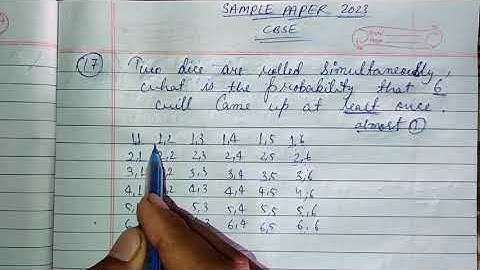 SAMPLE PAPER 2023
CBSE
17 Two dice are rolled simultaneously,
what is the probability that 6
will came up at least once.
atmost 1
1,1 1,2 1,3 1,4 1,5 1,6
2,1 2,2 2,3 2,4 2,5 2,6
3,1 3,2 3,3 3,4 3,5 3,6
4,1 4,2 4,3 4,4 4,5 4,6
5, 5,3 5,4 5,5 5,6
6 6,4 6,5 6,6